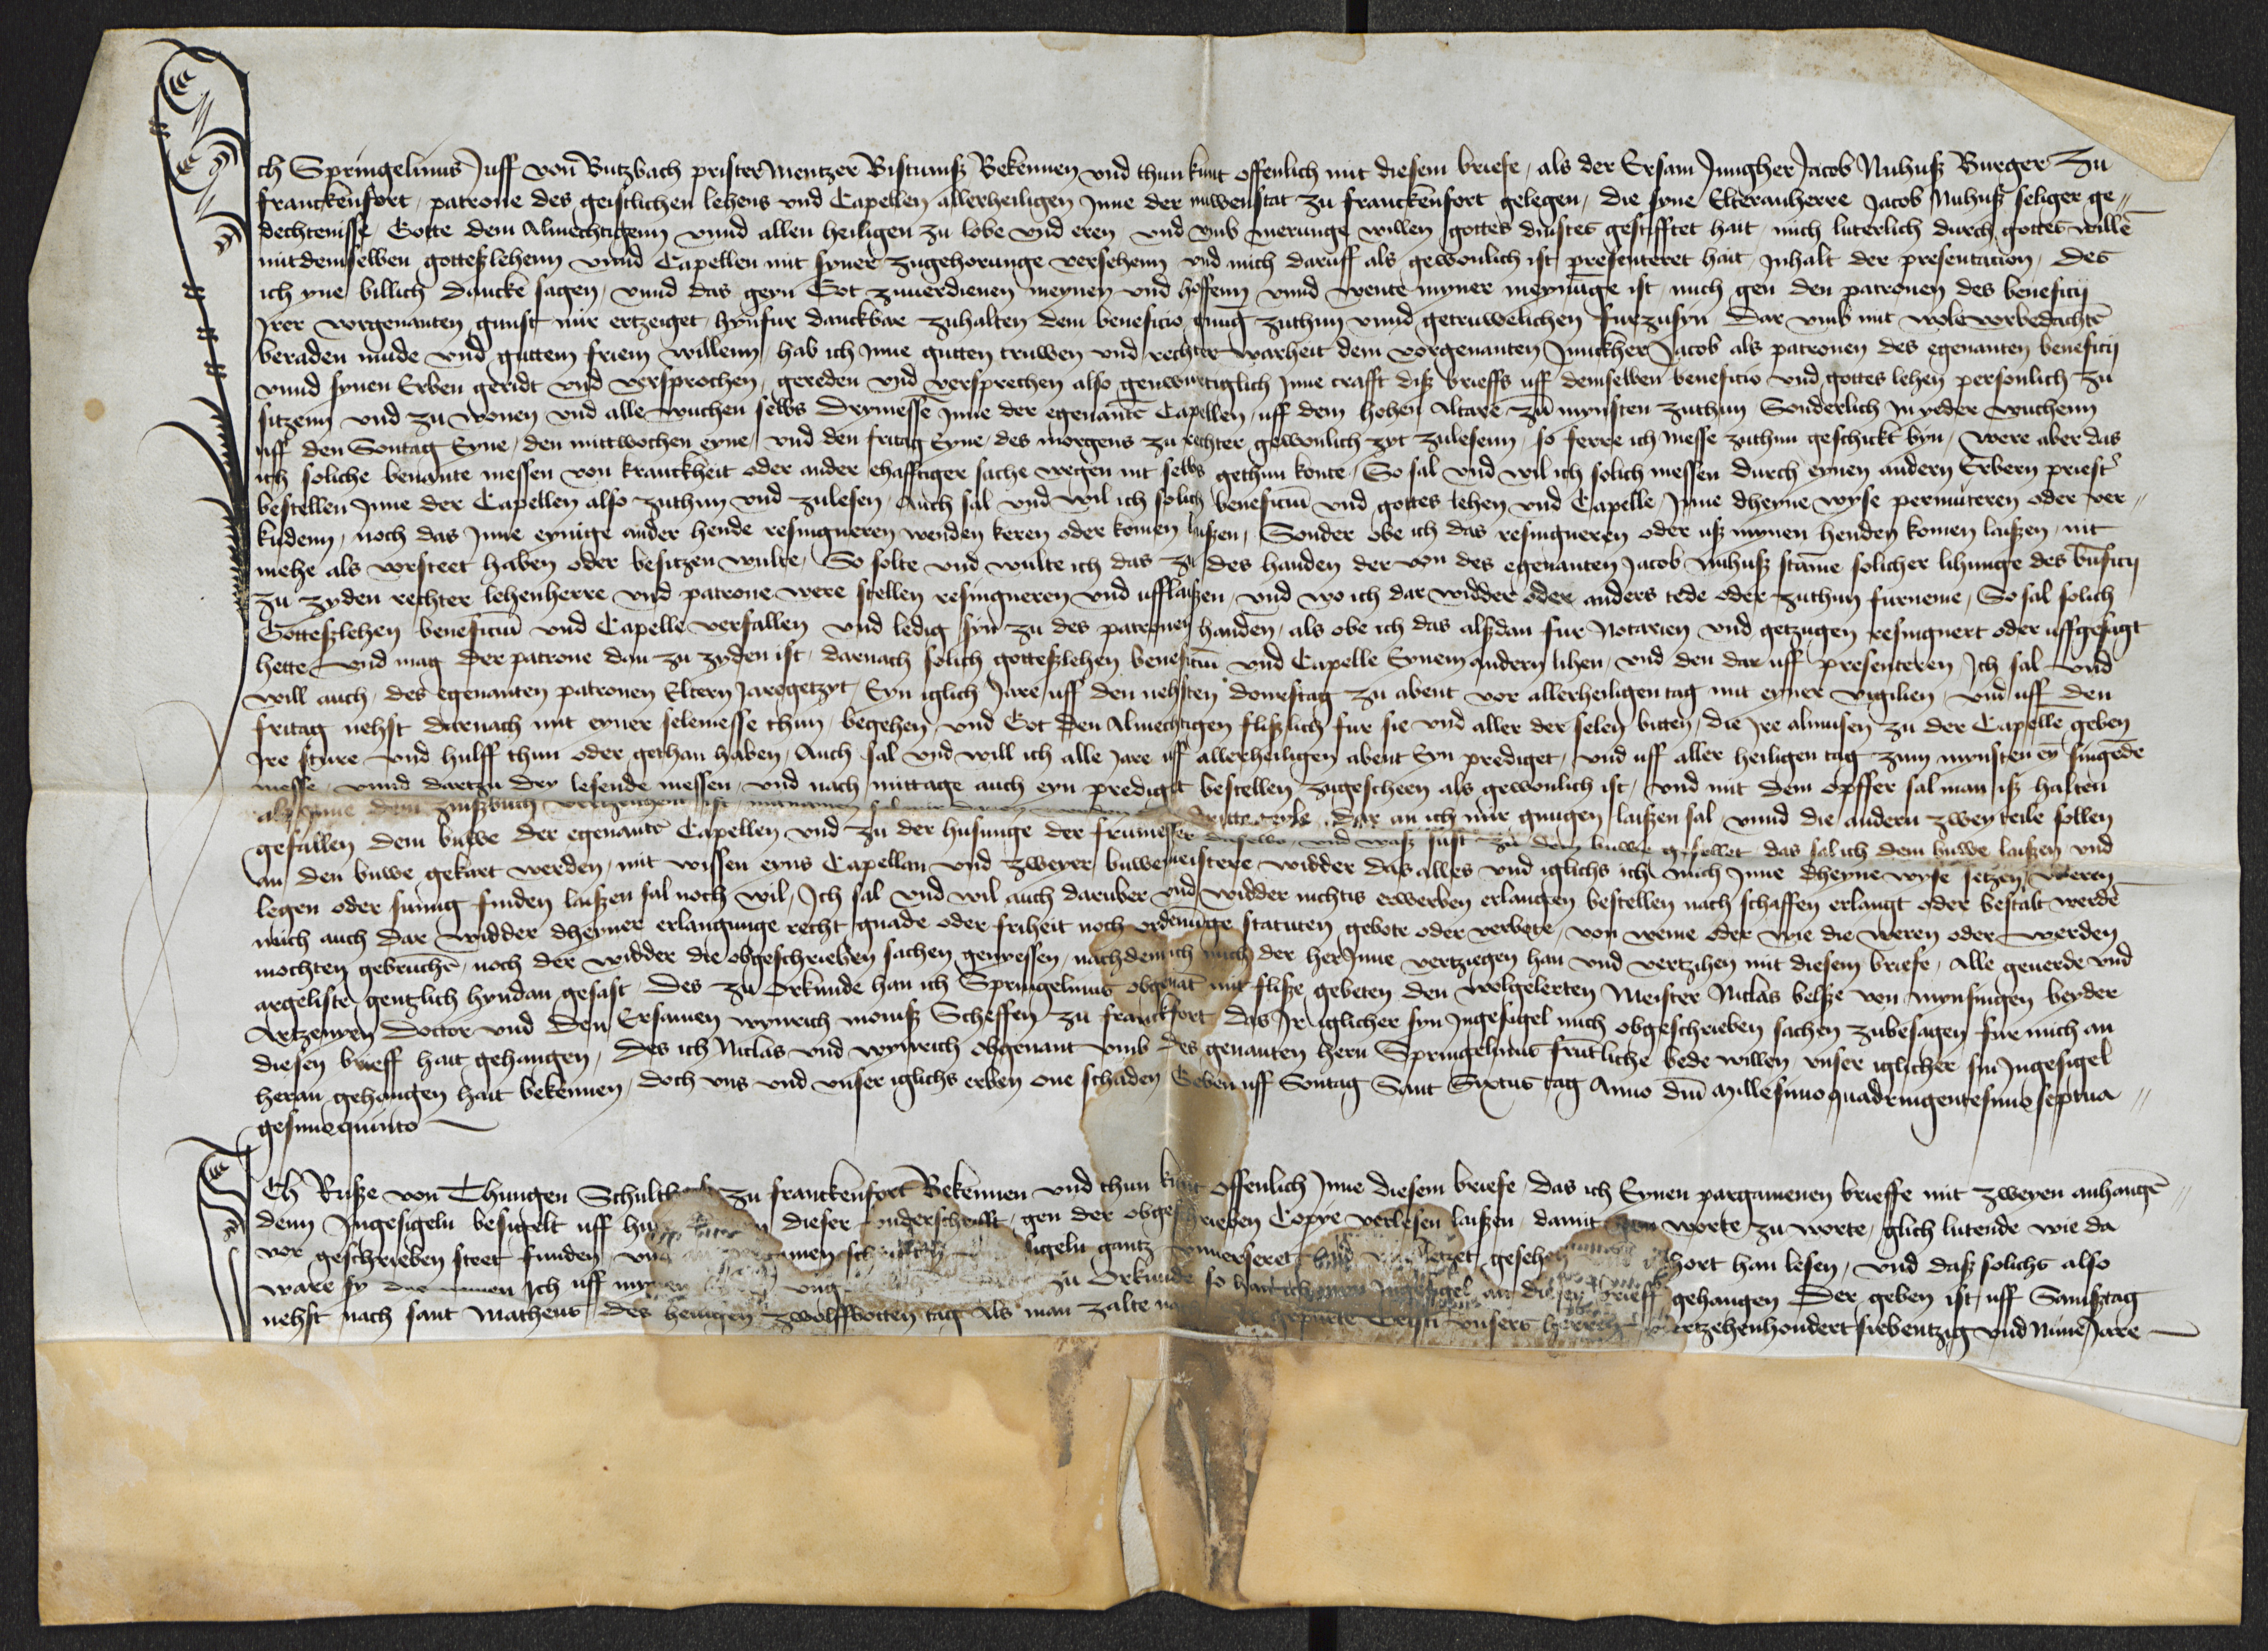 Ich Springelinus Juff von Butzbach prister Mentzer Bistumsz Bekennen vnd thun kunt offenlich mit diesem briefe, als der Ersam Jungher Jacob Nuhusz Burger zu
franckenfort, patrone des geistlichen lehens vnd Capellen allerheiligen Inne der nuwenstat zu franckenfort gelegen, die syne Elteranherre Jacob Nuhusz seliger ge„
dechtenisse, Gotte dem Almechtigenn vnnd allen heiligen zu lobe vnd eren, vnd vmb merunge willen gottes dinstes gestifftet hait, mich luterlich durch gottes willē
mit demselben gotteszlehenn vnnd Capellen mit syner zugehorunge versehenn vnd mich daruff als gewonlich ist presenteret hait, Inhalt der presentacion, des
ich yne billich dancke sagen, vnnd das gern Got zuuerdienen meynen vnd hoffenn vnnd wente myner meynūge ist, mich gen den patronen des beneficij
Irer vorgenanten gunst mir ertzeiget, hynfur danckbar zuhalten dem beneficio gnug zuthun vnnd getruwelichen furzusyn, Dar vmb mit wole vorbedachtē
beraden mude vnd guttem friem willenn, hab ich Inne gutten truwen vnd rechter warheit dem vorgenanten Junckher Jacob als patronen des egenanten beneficij
vnnd synen Erben geridt vnd versprochen, gereden vnd versprechen also genwurtiglich Inne crafft disz brieffs uff demselben beneficio vnd gottes lehen personlich zu
sitzenn vnd zu wonen vnd alle wuchen selbs drymesse Inne der egenantē Capellen, uff dem hohen Altare zū mynsten zuthun Sonderlich In yeder wuchenn
uff den Sontag Eyne, den mittwochen eyne, vnd den fritag Eyne, des morgens zu rechter gewonlich zyt zulesenn, so ferre ich messe zuthun geschickt byn, were aber das
ich soliche benante messen von kranckheit oder ander ehafftiger sache wegen nit selbs gethun konte, So sal vnd wil ich solich messen durch eynen andern Erbern priest
bestellen Inne der Capellen also zuthun vnd zulesen, Auch sal vnd wil ich solich beneficiū vnd gottes lehen vnd Capelle, Inne dheyne wyse permuteren oder ver„
kudenn, noch das Inne eynige ander hende resingneren wenden keren oder komen laiszen, Sonder obe ich das resingneren oder usz mynen henden komen laiszen, nit
mehe als vorsteet haben oder besitzen wulte, So solte vnd wulte ich das zu des handen der von des egenanten Jacob Nuhusz stāme solicher lihunge des bn̄ficij
zu zyden rechter lehenherre vnd patrone were stellen resingneren vnd ufflaiszen, vnd wo ich dar widder oder anders tede oder zuthun furneme, So sal solich
Gotteszlehen beneficiū vnd Capelle verfallen vnd ledig syn zu des patronen handen, als obe ich das alszdan fur Notarien vnd getzugen resingnert oder uffgesagt
hette vnd mag der patrone dan zu zyden ist, darnach solich gotteszlehen beneficiū vnd Capelle Eynem andern lihen, vnd den dar uff presenteren, Ich sal vnd
will auch, des egenanten patronen Eltern Jaregetzyt, Eyn iglich Jare uff den nehsten donrestag zu abent vor allerheiligen tag mit eyner vigilien, vnd uff den
fritag nehst darnach mit eyner selemesse thun, begehen, vnd Got den Almechtigen fliszlich fur sie vnd aller der selen bitten, die Ire almusen zu der Capellē geben
Ire sture vnd hulff thun oder gethan haben, Auch sal vnd will ich alle Jare uff allerheiligen abent Eyn prediget, vnd uff aller heiligen tag zum mynsten ey singēde
messe, vnnd dartzu drey lesende messen, vnd nach mittage auch eyn prediget bestellen zugescheen als gewonlich ist, vnd mit dem opffer sal man isz halten
als Inne dem zinszbuch vertzeichent ist, dritte teyle, dar an ich mir gnugen laiszen sal, vnnd die andern zwey teile sollen
gefallen dem buwe der egenantē Capellen vnd zu der husunge der frumesser daselbs, vnd wasz sust zu dem buwe gefellet, das sal ich dem buwe laiszen vnd
an den buwe gekart werden, mit wissen eyns Capellan vnd zweyer buwemeistere, widder das alles vnd iglichs ich mich Inne dheyne wyse setzen, weren
legen oder sumig finden laiszen sal noch wil, Ich sal vnd wil auch daruber vnd widder nichtis erwerben erlangen bestellen nach schaffen erlangt oder bestalt werdē
mich auch dar widder dheyner erlangunge recht gnade oder friheit noch ordenūge statuten gebote oder verbote, von weme oder wie die weren oder werden
mochten gebruchē, noch der widder die obgeschrieben sachen genyessen, nachdem ich mich der her Inne vertziegen han vnd vertzihen mit diesem briefe, Alle geuerde vnd
argeliste gentzlich hyndan gesast, Des zu Orkunde han ich Springelinus obgenāt mit flisze gebeten den wolgelerten Meister Niclas belsze von mynsingen beyder
Artzenyen Doctor vnd den Ersamen wynrich monisz Scheffen zu franckfort das Ir iglicher syn Ingesigel mich obgeschrieben sachen zubesagen fur mich an
diesen brieff hait gehangen, Des ich Niclas vnd wynrich obgenant vmb des genanten hern Springelinus frūtliche bede willen, vnser iglicher sin Ingesigel
heran gehangen hait bekennen, doch vns vnd vnser iglichs erben one schaden Geben uff Sontag Sant Sixtus tag Anno dn̄i Millesimoquadringentesimo septua„
gesimoquinto
Ich Risze von Thungen Schulth zu franckenfort Bekennen vnd thun kunt offenlich Inne diesem briefe, das ich Eynen pargamenen brieffe mit zweyen anhangē„
denn Ingesigeln besigelt uff dieser vnderschrifft, gen der obgeschrieben Copye verlesen laiszen, damit von worte zu worte, glich lutende wie da
vor geschrieben steet funden, vnd an sigeln gantz vnuerseret gesehen gehort han lesen, vnd dasz solichs also
ware sy Ich uff mynen zu Orkunde so han ich myn Ingesigel an diesen brieff gehangen Der geben ist, uff Samsztag
nehst nach sant Matheus des heiligen zwolffbotten tag Als man zalte gepurte Cristi vnsers herren viertzehenhondert siebentzig vnd Nune Jare